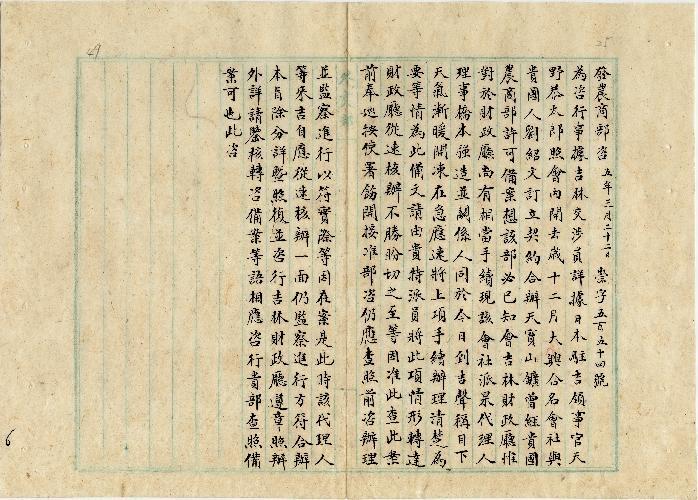 發農商部咨 五年三月二十二日 崇字五百五十四號
為咨行事據吉林交涉員詳據日本駐吉領事官天
野恭太郎照會內開去歲十二月大興合名會社與
貴國人劉紹文訂立契約合辦天寶山鑛曾經貴國
農商部許可備案想該部必已知會吉林財政廳惟
對於財政廳尚有相當手續現該會社派員代理人
理事橋本強造並關係人同於今日到吉聲稱目下
天氣漸暖開凍在急應速將上項手續辦理清楚為
要等情為此備文請由貴特派員將此項情形轉達
財政廳從速核辦不勝盼切之至等因准此查此案
前奉巡按使署飭開接准部咨仍應查照前咨辦理
並監察進行以符實際等因在案是此時該代理人
等來吉自應從速核辦一面仍監察進行方符合辦
本旨除分詳暨照復並咨行吉林財政廳遵章照辦
外詳請鑒核轉咨備案等語相應咨行貴部查照備
案可也此咨
25
49
6